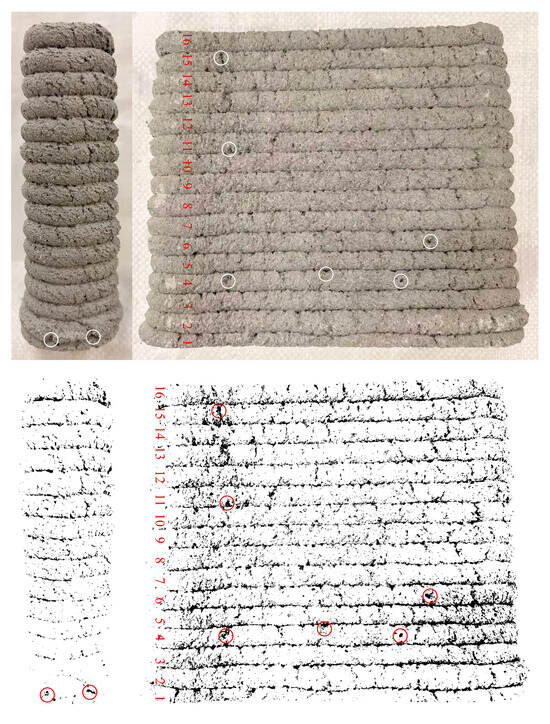 16
15
14
13
12
11
10
9
8
7
6
5
4
3
2
1
16
15
14
13
12
11
10
9
8
7
6
5
4
3
2
1